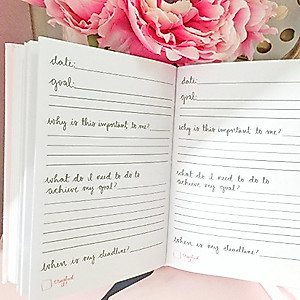 date:
goal:
why is this important to me?
what do I need to do to
achieve my goal?
when is my deadline?
date:
goal:
why is this important to me?
what do I need to do to
achieve my goal?
when is my deadline?